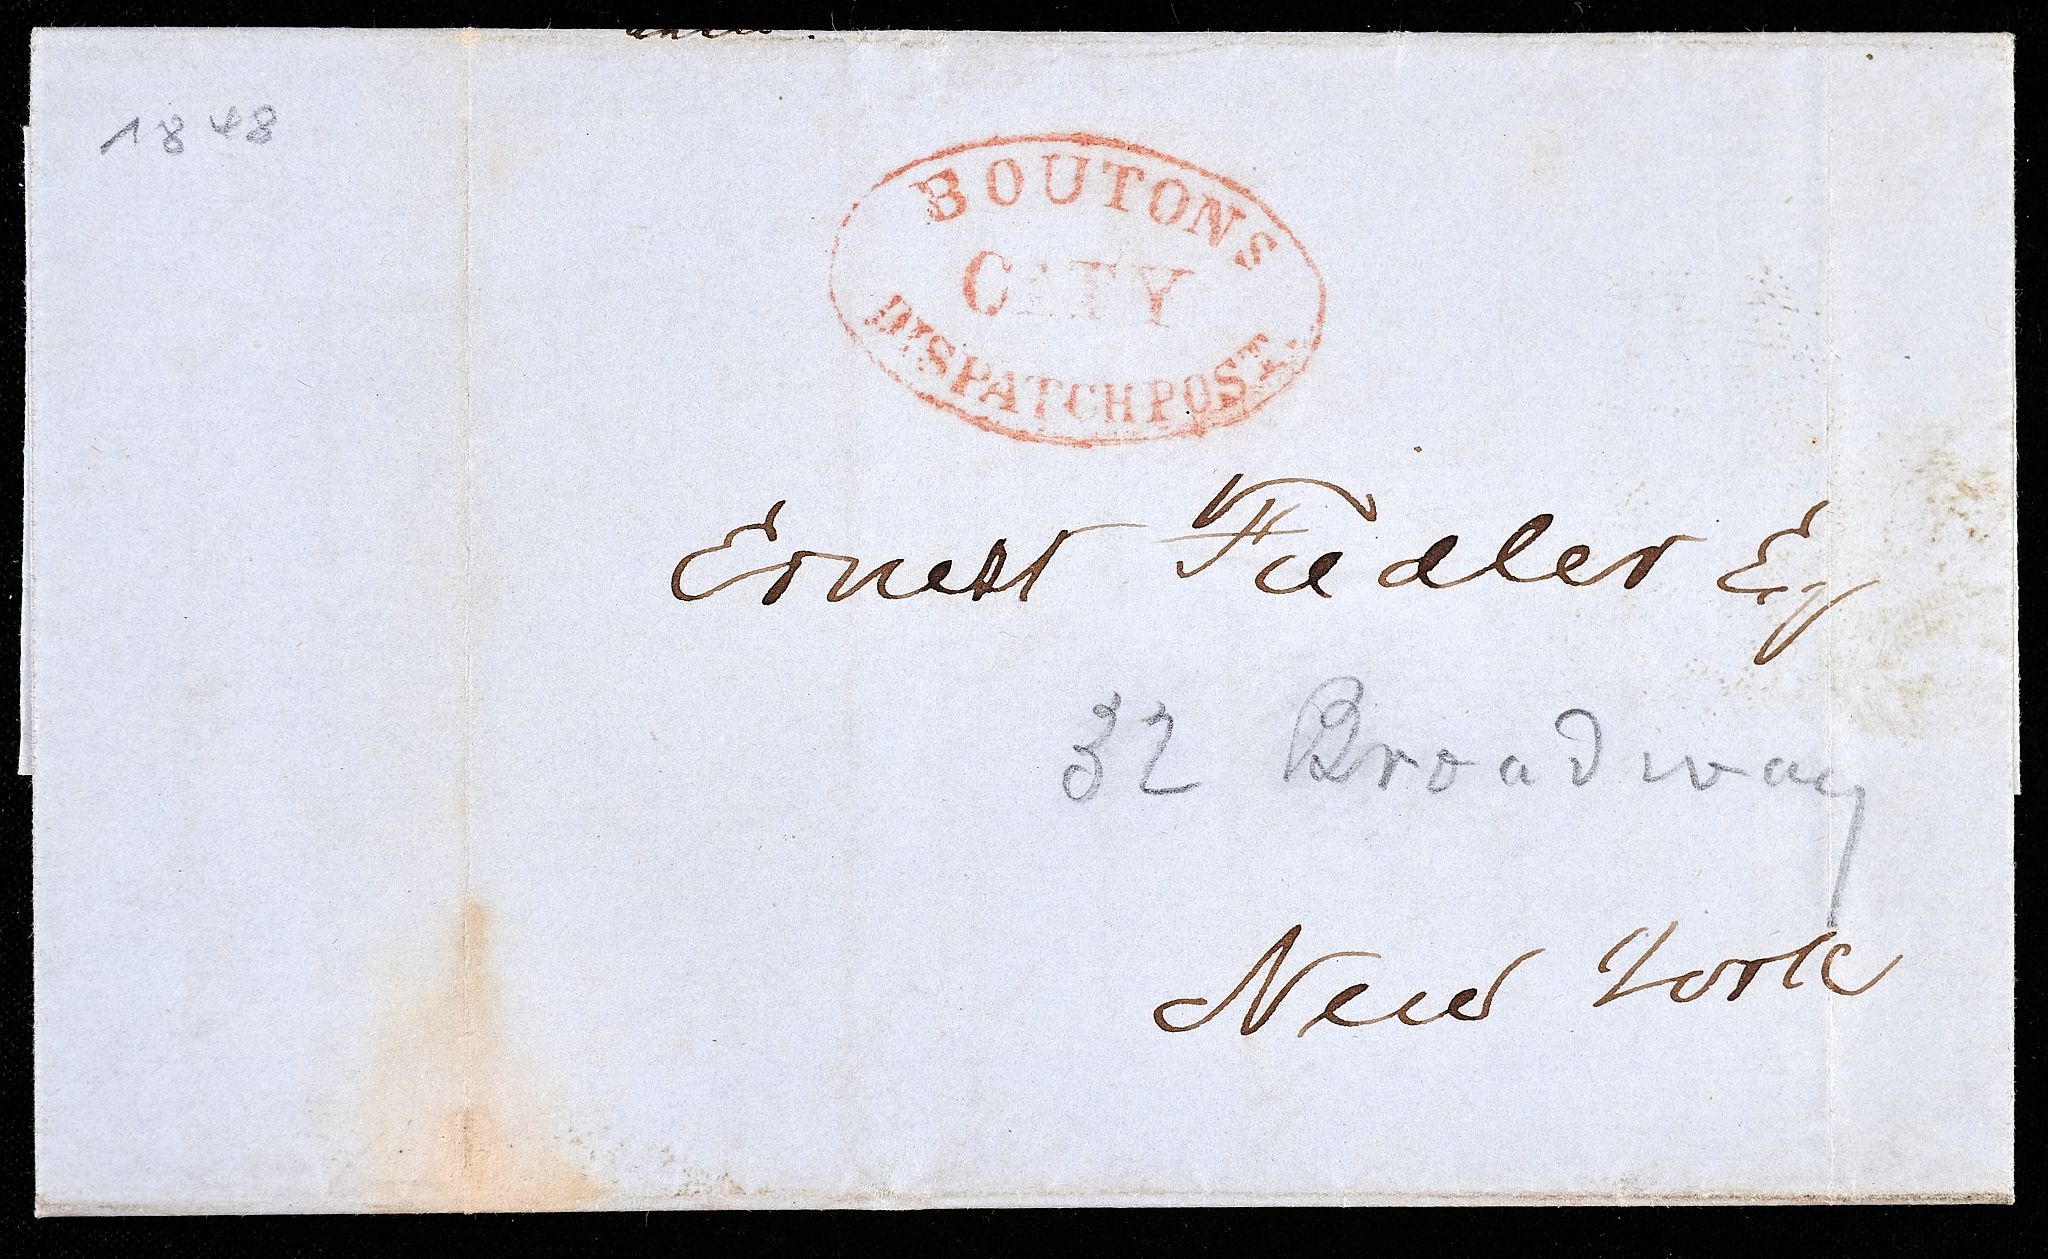 1848
BOUTONS
CITY
DISPATCH POST.
Ernest Fiedler Eq
32 Broadway
New York